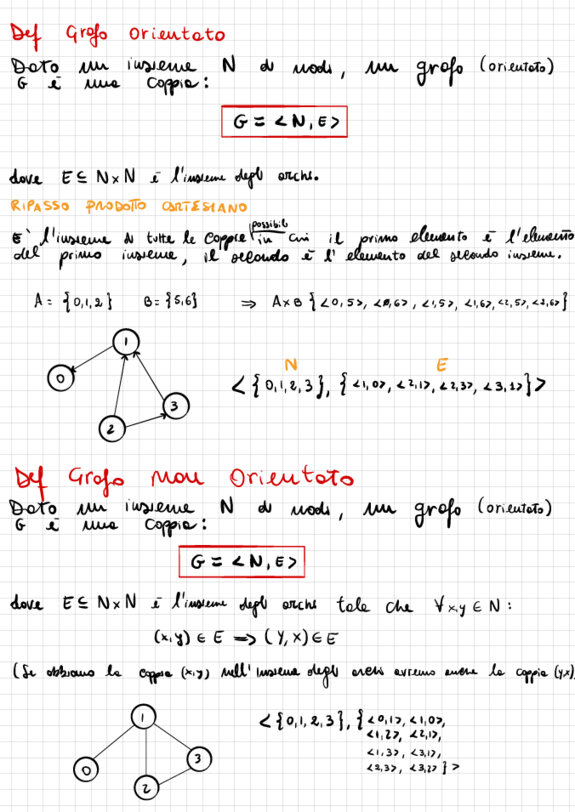 Def Grafo Orientato
Dato un insieme N di nodi, un grafo (orientato)
G è una coppia:
G = <N, E>
dove E ⊆ N×N è l'insieme degli archi.
RIPASSO PRODOTTO CARTESIANO
possibili
E' l'insieme di tutte le coppie in cui il primo elemento è l'elemento
del primo insieme, il secondo è l'elemento del secondo insieme.
A = {0,1,2} B = {5,6} ⇒ A×B {<0,5>, <0,6>, <1,5>, <1,6>, <2,5>, <2,6>}
1
0
3
2
N E
<{0,1,2,3}, {<1,0>, <2,1>, <2,3>, <3,1>}>
Def Grafo Non Orientato
Dato un insieme N di nodi, un grafo (orientato)
G è una coppia:
G = <N, E>
dove E ⊆ N×N è l'insieme degli archi tale che ∀x,y ∈ N:
(x,y) ∈ E ⇒ (y,x) ∈ E
(Se abbiamo la coppia (x,y) nell'insieme degli archi avremo anche la coppia (y,x)
1
0
3
2
<{0,1,2,3}, {<0,1>, <1,0>,
<1,2>, <2,1>,
<1,3>, <3,1>,
<2,3>, <3,2>}>